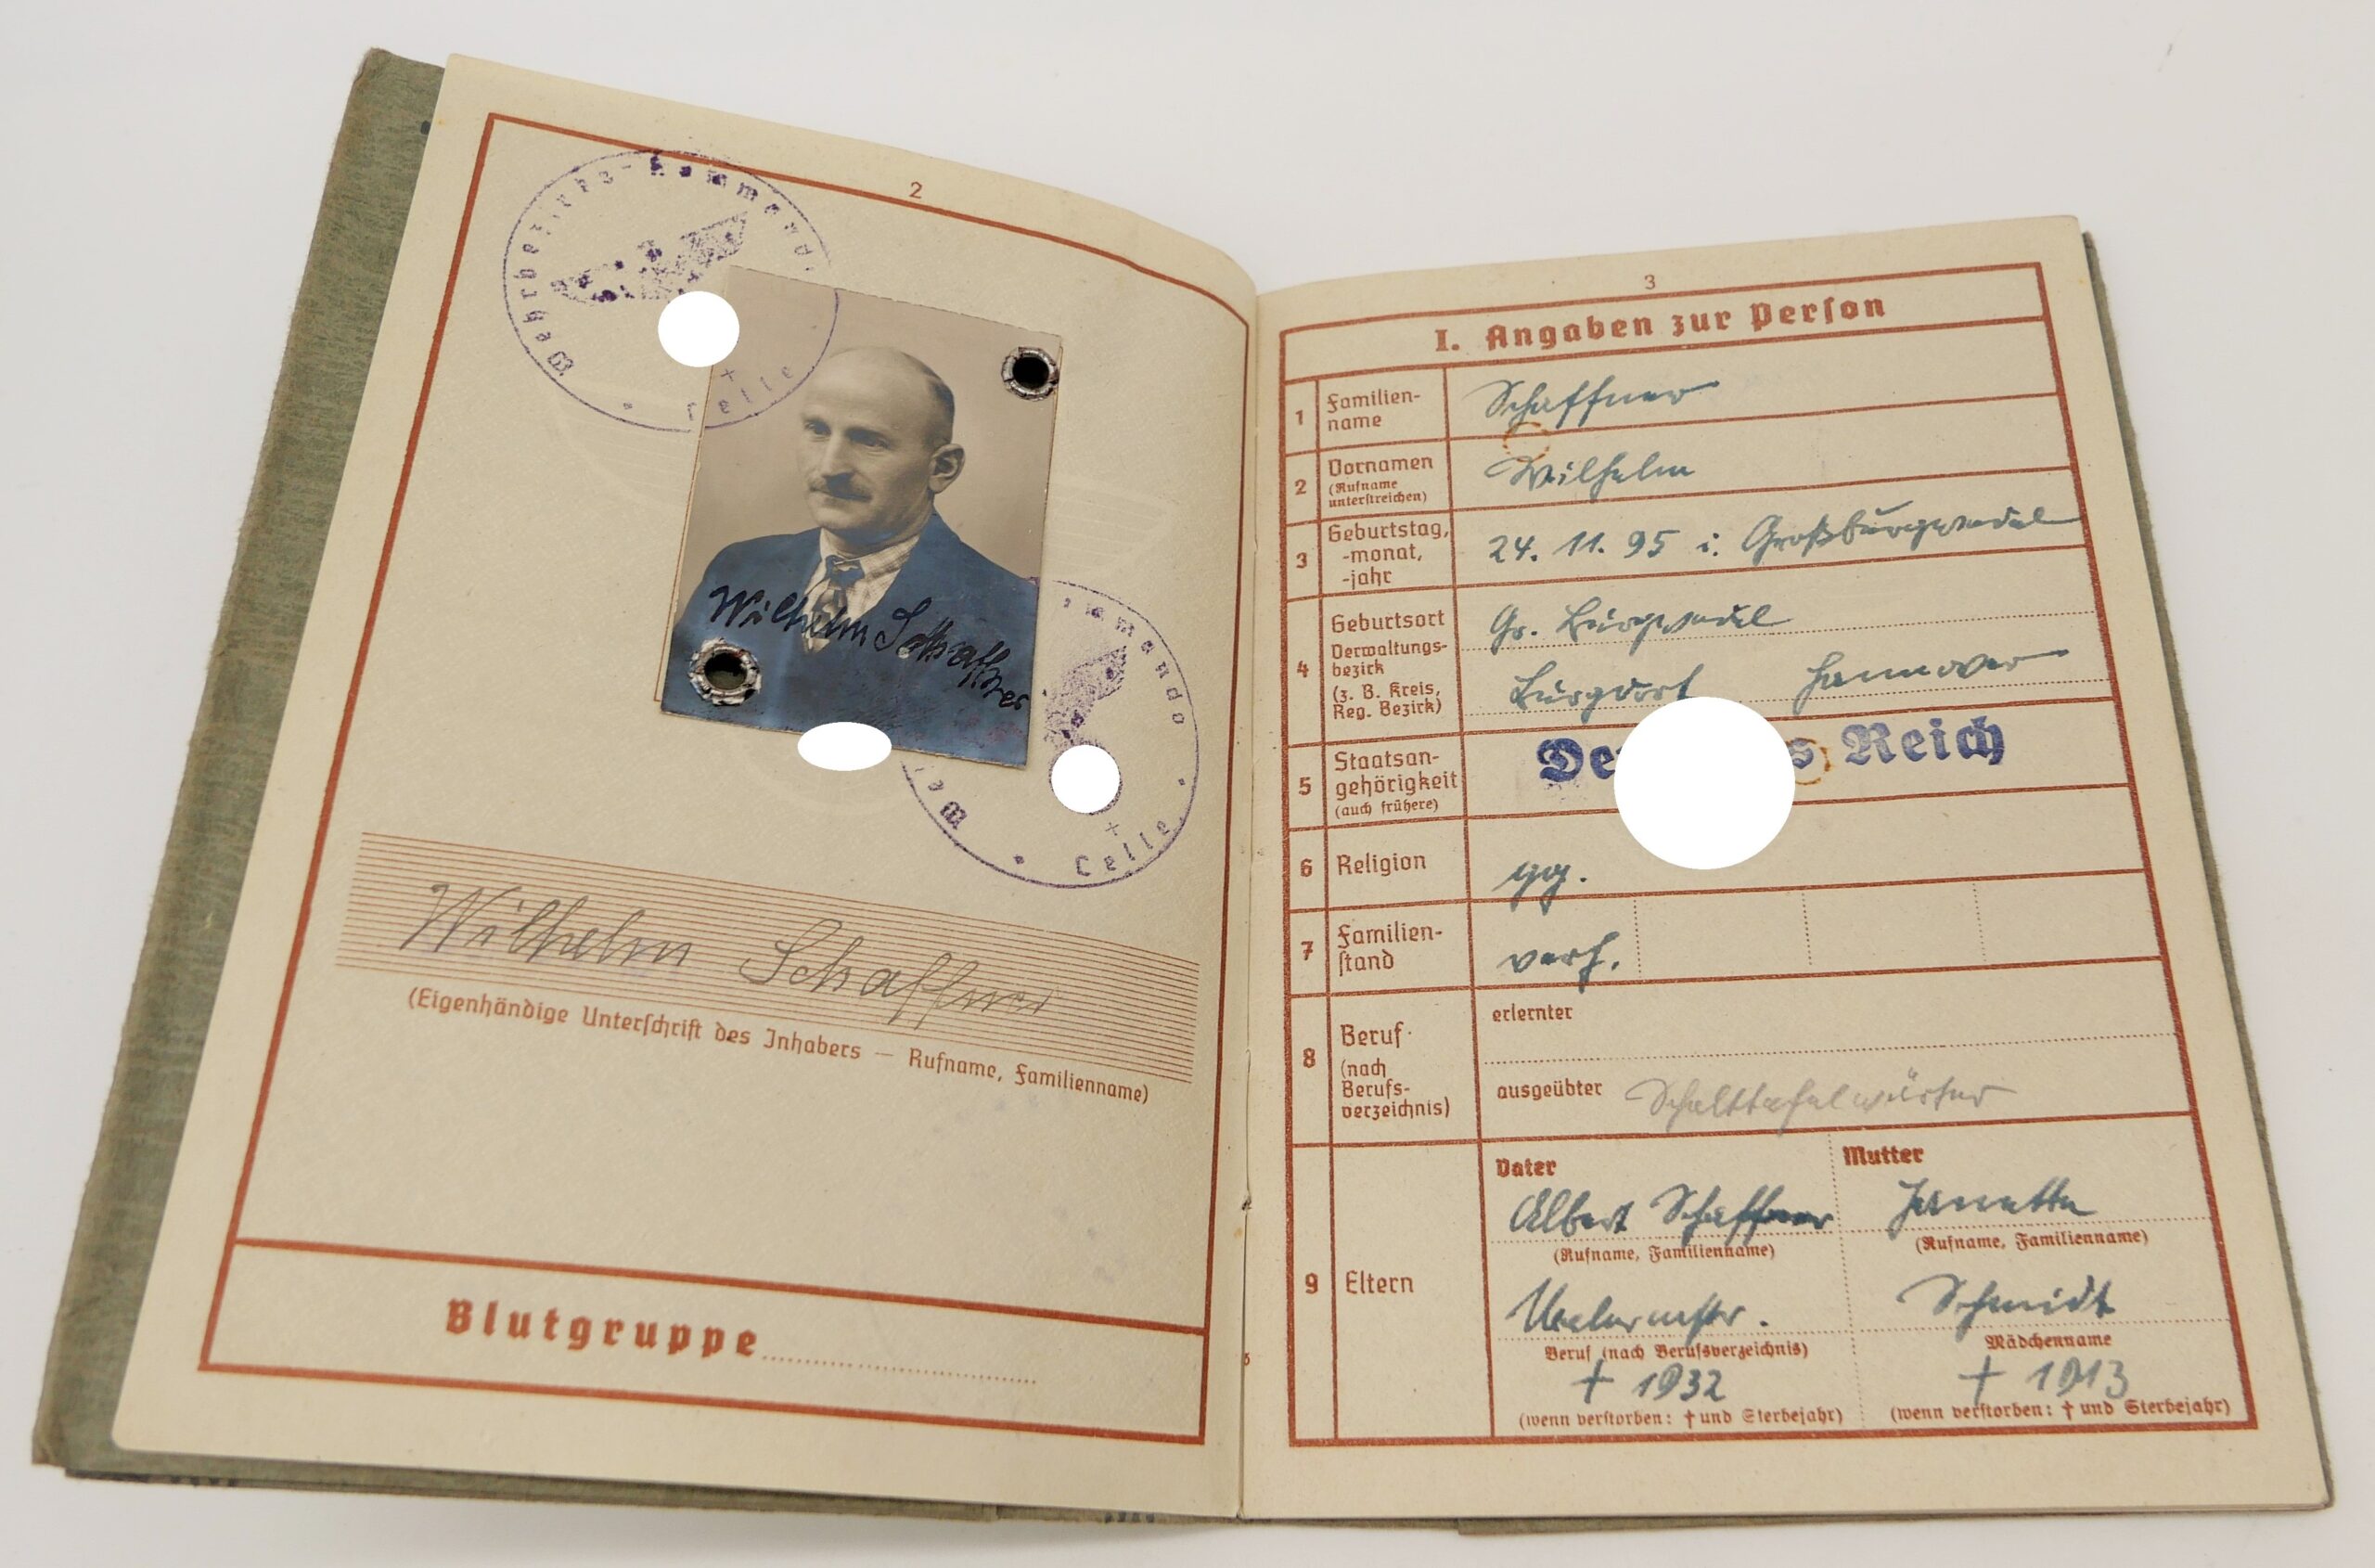 2
Wehrbezirks-Kommando
Celle
Wilhelm Schaffner
mmando
We
Celle
Wilhelm Schaffner
(Eigenhändige Unterschrift des Inhabers — Rufname, Familienname)
Blutgruppe
3
I. Angaben zur Person
1 Familien-
name
Schaffner
2 Vornamen
(Rufname
unterstreichen)
Wilhelm
3 Geburtstag,
-monat,
-jahr
24. 11. 95 i. Großburgwedel
4 Geburtsort
Verwaltungs-
bezirk
(z. B. Kreis,
Reg. Bezirk)
Gr. Burgwedel
Burgdorf Hannover
5 Staatsan-
gehörigkeit
(auch frühere)
De s Reich
6 Religion
7 Familien-
stand
verh.
8 Beruf
(nach
Berufs-
verzeichnis)
erlernter
ausgeübter Schalttafelwärter
9 Eltern
Vater
Albert Schaffner
(Rufname, Familienname)
Beruf (nach Berufsverzeichnis)
† 1932
(wenn verstorben: † und Sterbejahr)
Mutter
Janette
(Rufname, Familienname)
Schmidt
Mädchenname
† 1913
(wenn verstorben: † und Sterbejahr)